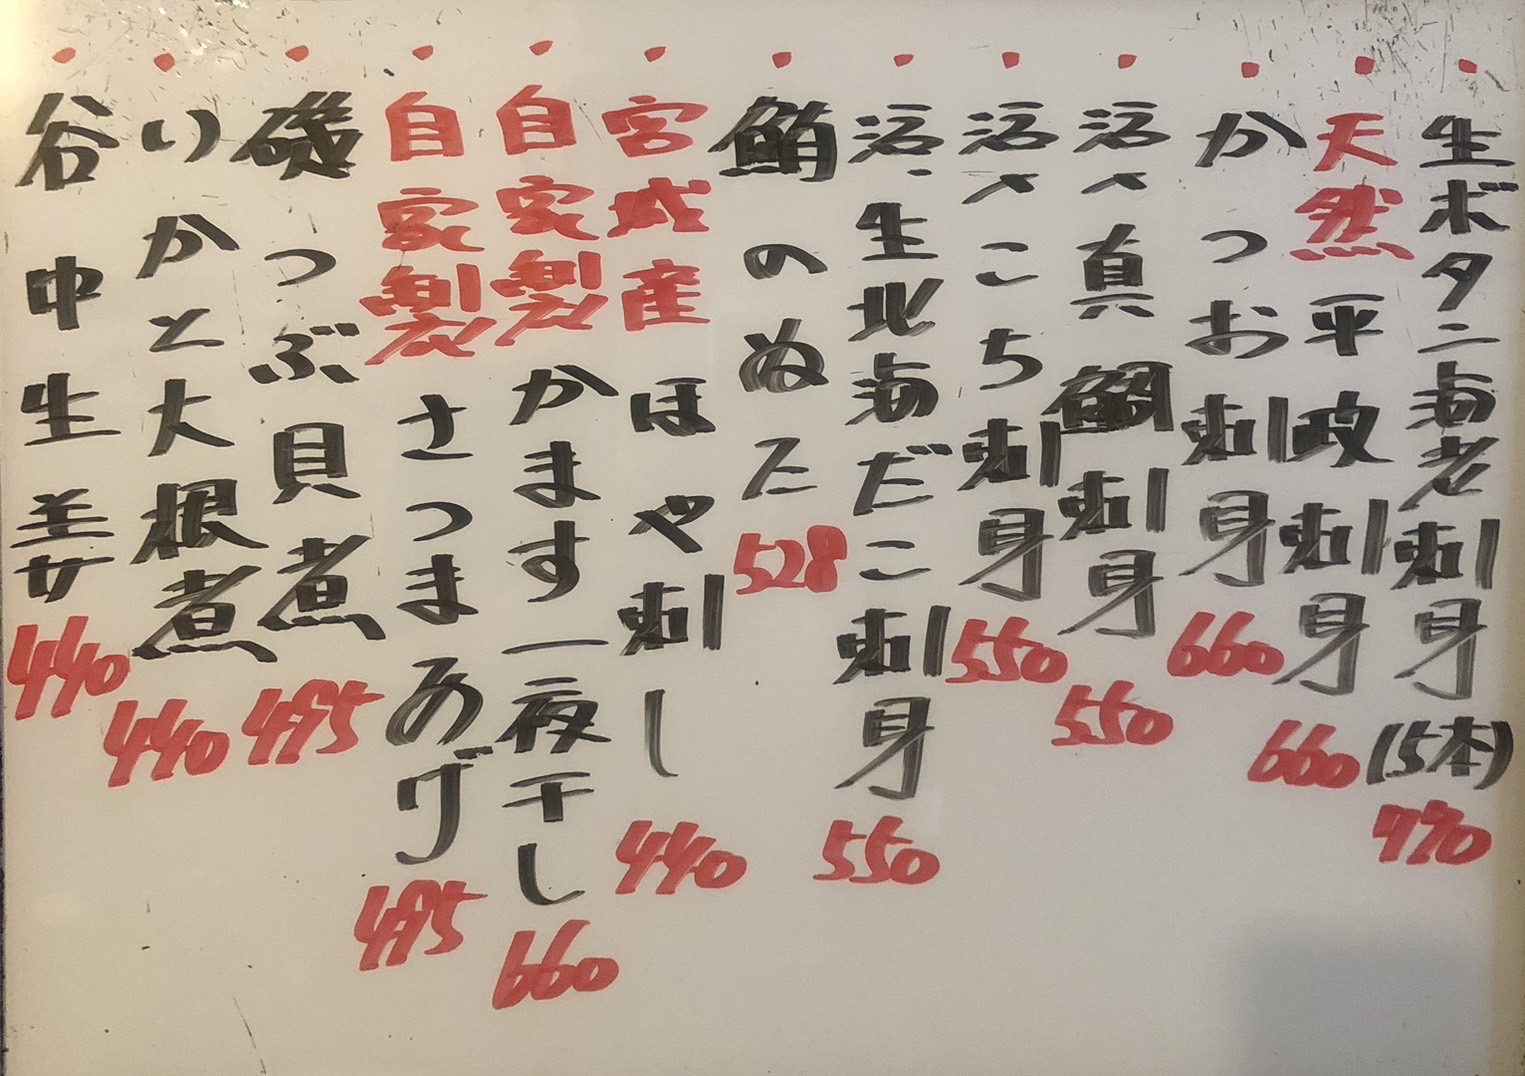 ・生ボタン海老刺身(5本) 770
・天然平政刺身 660
・かつお刺身 660
・活〆真鯛刺身 550
・活〆こち刺身 550
・活・生北海だこ刺身 550
・鮪のぬた 528
・宮城産ほや刺し 440
・自家製かます一夜干し 660
・自家製さつまあげ 495
・磯つぶ貝煮 495
・いかと大根煮 440
・谷中生姜 440